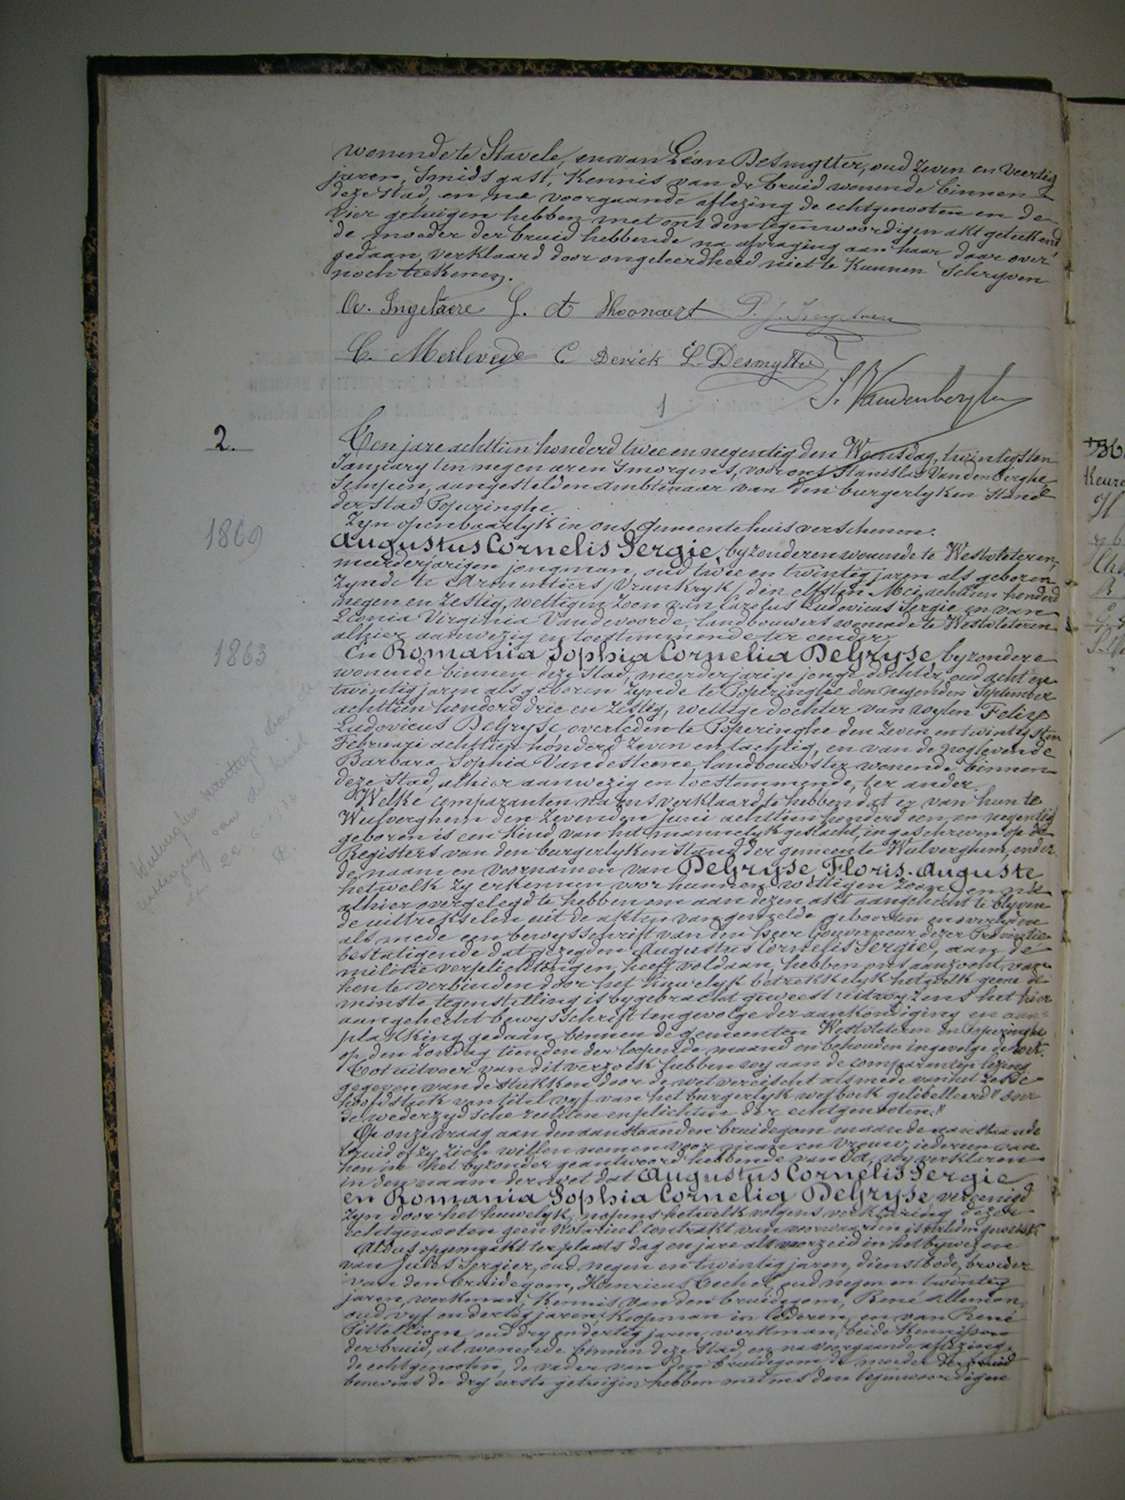 wonende te Stavele, en van Léon Desmytter, oud zeven en veertig
jaren, Smids gast, Kennis van de bruid wonende binnen
deze stad, en na voorgaande aflezing de echtgenooten en de
vier getuigen hebben met ons den tegenwoordigen akt geteekend
de moeder der bruid hebbende na afvraging aan haar daar over
gedaan, verklaard door ongeleerdheid niet te kunnen schryven
noch teekenen.
Av. Ingelaere G. A Hoonaert
C. Merlevede C Devick L. Desmytter
S. Vandenberghe
1
2. Ten jare achttien honderd twee en negentig den Woensdag, twintigsten
January ten negen uren s'morgens, voor ons Stanislas Vandenberghe
Schepen, aangestelden ambtenaar van den burgerlyken Stand
der stad Poperinghe
Zyn openbaarlyk in ons gemeentehuis verschenen.
1869
Augustus Cornelis Sergie, byzonderen wonende te Westvleteren,
meerderjarigen jongman, oud twee en twintig jaren als geboren
zynde te Armentiers, Vrankryk, den elfsten Mei achttien honderd
negen en zestig, wettigen zoon van Carolus Ludovicus Sergie en van
Leonia Virginia Vandevoorde, landbouwers wonende te Westvleteren
alhier aanwezig en toestemmende ter eender
1863
En Romania Sophia Cornelia Delryse, byzondere
wonende binnen deze stad, meerderjarige jonge dochter, oud acht en
twintig jaren als geboren zynde te Poperinghe den negenden September
achttien honderd drie en zestig, wettige dochter van wylen Felix
Ludovicus Delryse overleden te Poperinghe den zeven en twintigsten
February achttien honderd zeven en tachtig, en van de nog levende
Barbara, Sophia Vandesteene, landbouwster wonende binnen
deze stad, alhier aanwezig en toestemmende, ter ander.
Welke comparanten na ons verklaard te hebben dat er van hun te
Wulverghem den zevenden Juni achttien honderd een en negentig
geboren is een kind van het mannelyk geslacht, ingeschreven op de
Registers van den burgerlyken stand der gemeente Wulverghem, onder
de naam en voornamen van Delryse, Floris-Auguste
hetwelk zy erkennen voor hunnen wettigen zoon, en na
alhier overgelegd te hebben om aan dezen akt aangehecht te blyven
de uittreksels uit de akten van gemelde geboorten en overlyden
als mede een bewysschrift van den heer Gouverneur dezer Provintie
bestatigende dat gezegden Augustus Cornelis Sergie, aan de
militie verplichtingen heeft voldaan, hebben ons aanzocht van
hen te verbinden door het huwelyk betrekkelyk hetwelk geene de
minste tegenstelling is bygebracht geweest uitwyzens het hier
aangehecht bewysschrift tengevolge der aankondiging en aan=
plakking gedaan binnen de gemeenten Westvleteren en Poperinghe
op den zondag tienden der loopende maand en behouden ingevolge de wet.
Tot uitvoer van dit verzoek hebben wy aan de comparanten lezing
gegeven van de stukken door de wet vereischt alsmede van het zesde
hoofdstuk van titel vyf van het burgerlyk wetboek gelibelleerd "over
de wederzydsche rechten en plichten der echtgenooten."
Op onze vraag aan den aanstaanden bruidegom en aan de aanstaande
bruid of zy zich willen nemen voor man en vrouw, iedereen van
hen in het byzonder geantwoord hebbende van Ja, wy verklaren
in den naam der wet dat Augustus Cornelis Sergie
en Romania Sophia Cornelia Delryse vereenigd
zyn door het huwelyk, nopens hetwelk volgens verklaring dezer
echtgenooten geen Notarieel Contrakt van voorwaarden is verleden geweest
Aldus opgemaakt ter plaats dag en jare als voorzeid in het bywezen
van Jules Sergier, oud negen en twintig jaren, dienstbode, broeder
van den bruidegom, Henricus Techel, oud negen en twintig
jaren, werkman, Kennis van den bruidegom, René Alleman,
oud vyf en dertig jaren, Koopman in Lederen, en van René
oud dry en dertig jaren, werkman, beide Kennissen
der bruid, al wonende binnen deze stad, en na voorgaande aflezing,
de echtgenooten, de vader van den bruidegom de moeder der bruid
benevens de dry eerste getuigen hebben met ons den tegenwoordigen